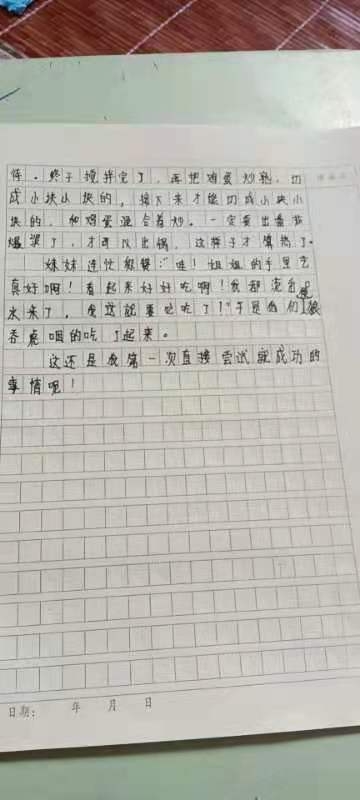 怪。终于搅拌完了,再把鸡蛋炒熟,切
成小块小块的,接下来才能切成小块小
块的,和鸡蛋混合着炒。一定要出番茄
了,才可以出锅,这样子才算熟了。
妹妹连忙称赞:“哇!姐姐的手里艺
真好啊!看起来好好吃啊!我都流口
水来了,我这就要吃吃了!”于是我们狼
吞虎咽的吃了起来。
这还是我第一次直接尝试就成功的
事情呢!
日期: 年 月 日